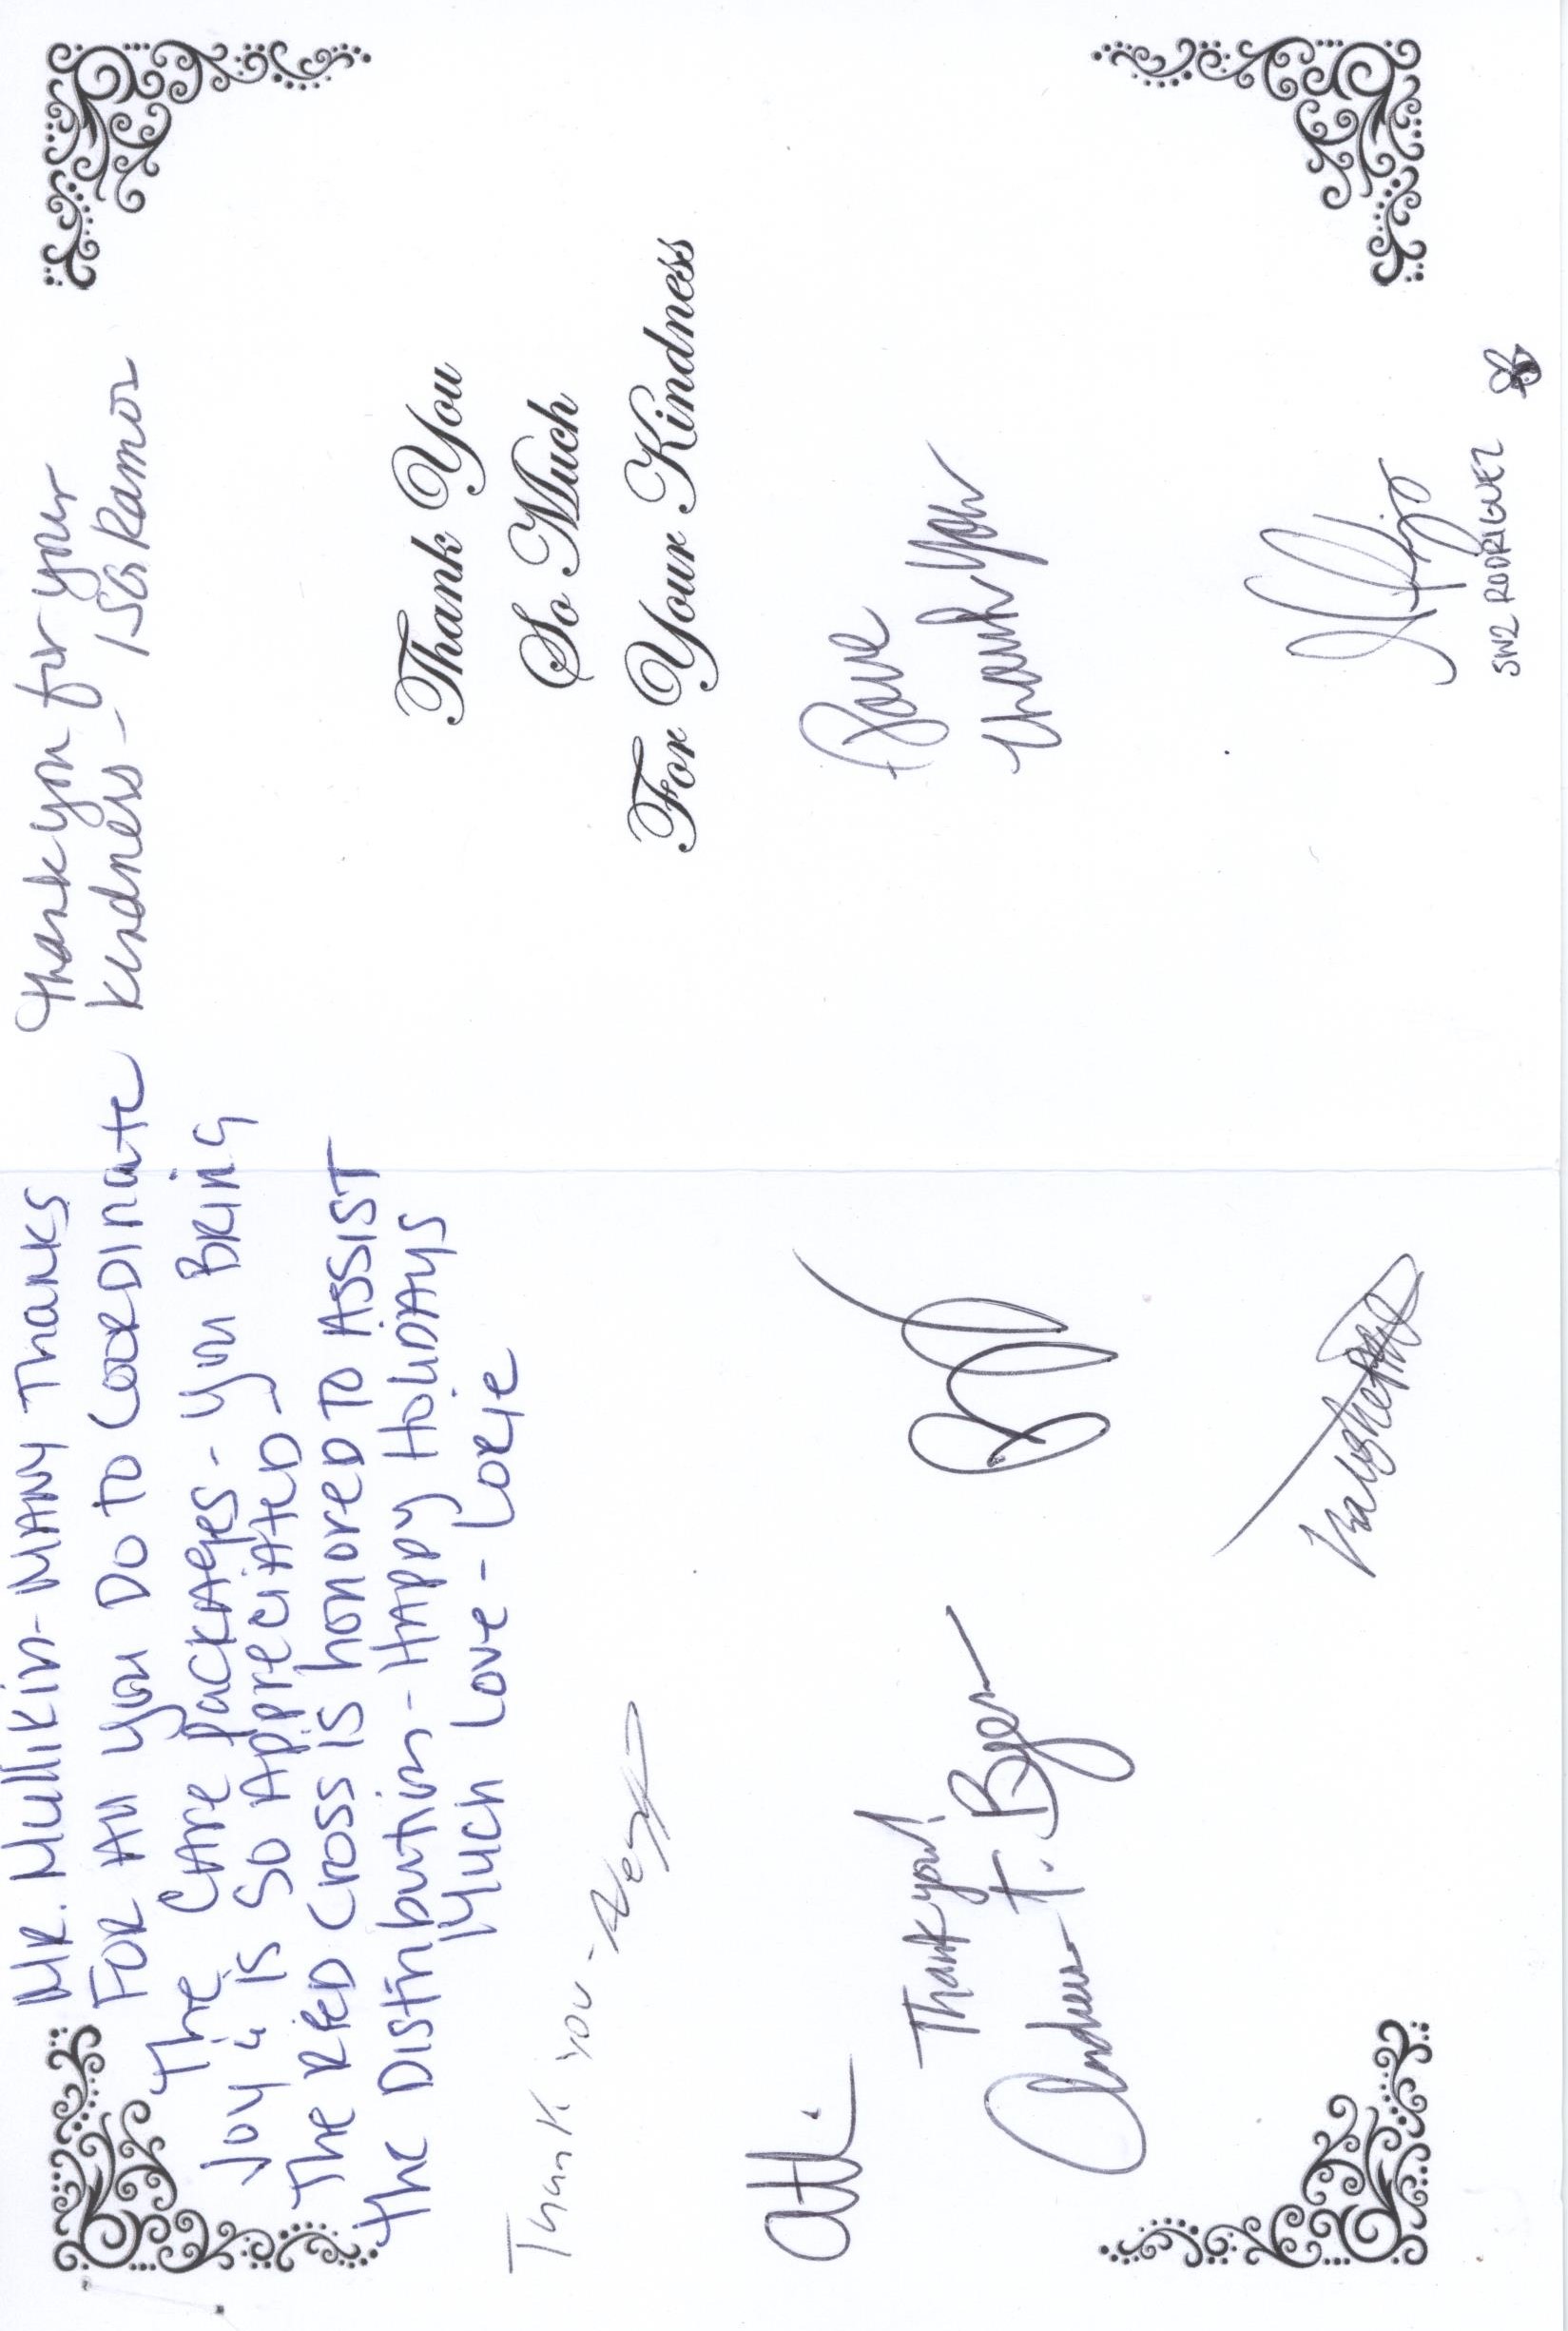 Mr. Mullikin - Many Thanks
For All you Do to Coordinate
The Care Packages - you Bring
Joy & is so Appreciated
The Red Cross is honored to Assist
the Distribution - Happy Holidays
Much Love - Lorie
Thank you -
Thank you!
Andrew T.
Thank you for your
kindness - 1SG Ramos
Thank You
So Much
For Your Kindness
Dave
Thank you
SW2 RODRIGUEZ